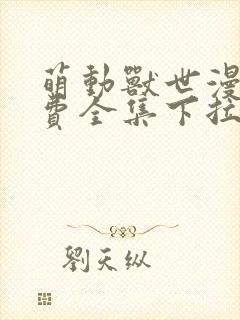 萌動獸世漫
費全集下拉
劉天纵